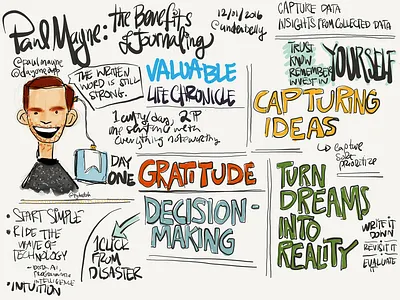 Paul Mayne: the Benefits of Journaling
12/01/2016
@underbelly
@paulmayne
@dayoneapp
THE WRITTEN
WORD IS STILL
STRONG.
DAY
ONE
• START SIMPLE
• RIDE THE
WAVE OF
TECHNOLOGY
INTELLIGENCE
• INTUITION
VALUABLE
LIFE CHRONICLE
1 entry/day, 2
one sentence
everything noteworthy
GRATITUDE
DECISION-
MAKING
1 CLICK
FROM
DISASTER
CAPTURE DATA
INSIGHTS FROM COLLECTED DATA
TRUST
KNOW
REMEMBER
INVEST IN
YOURSELF
CAPTURING
IDEAS
↳ CAPTURE
PRIORITIZE
TURN
DREAMS
INTO
REALITY
WRITE IT
DOWN
REVISIT IT
EVALUATE